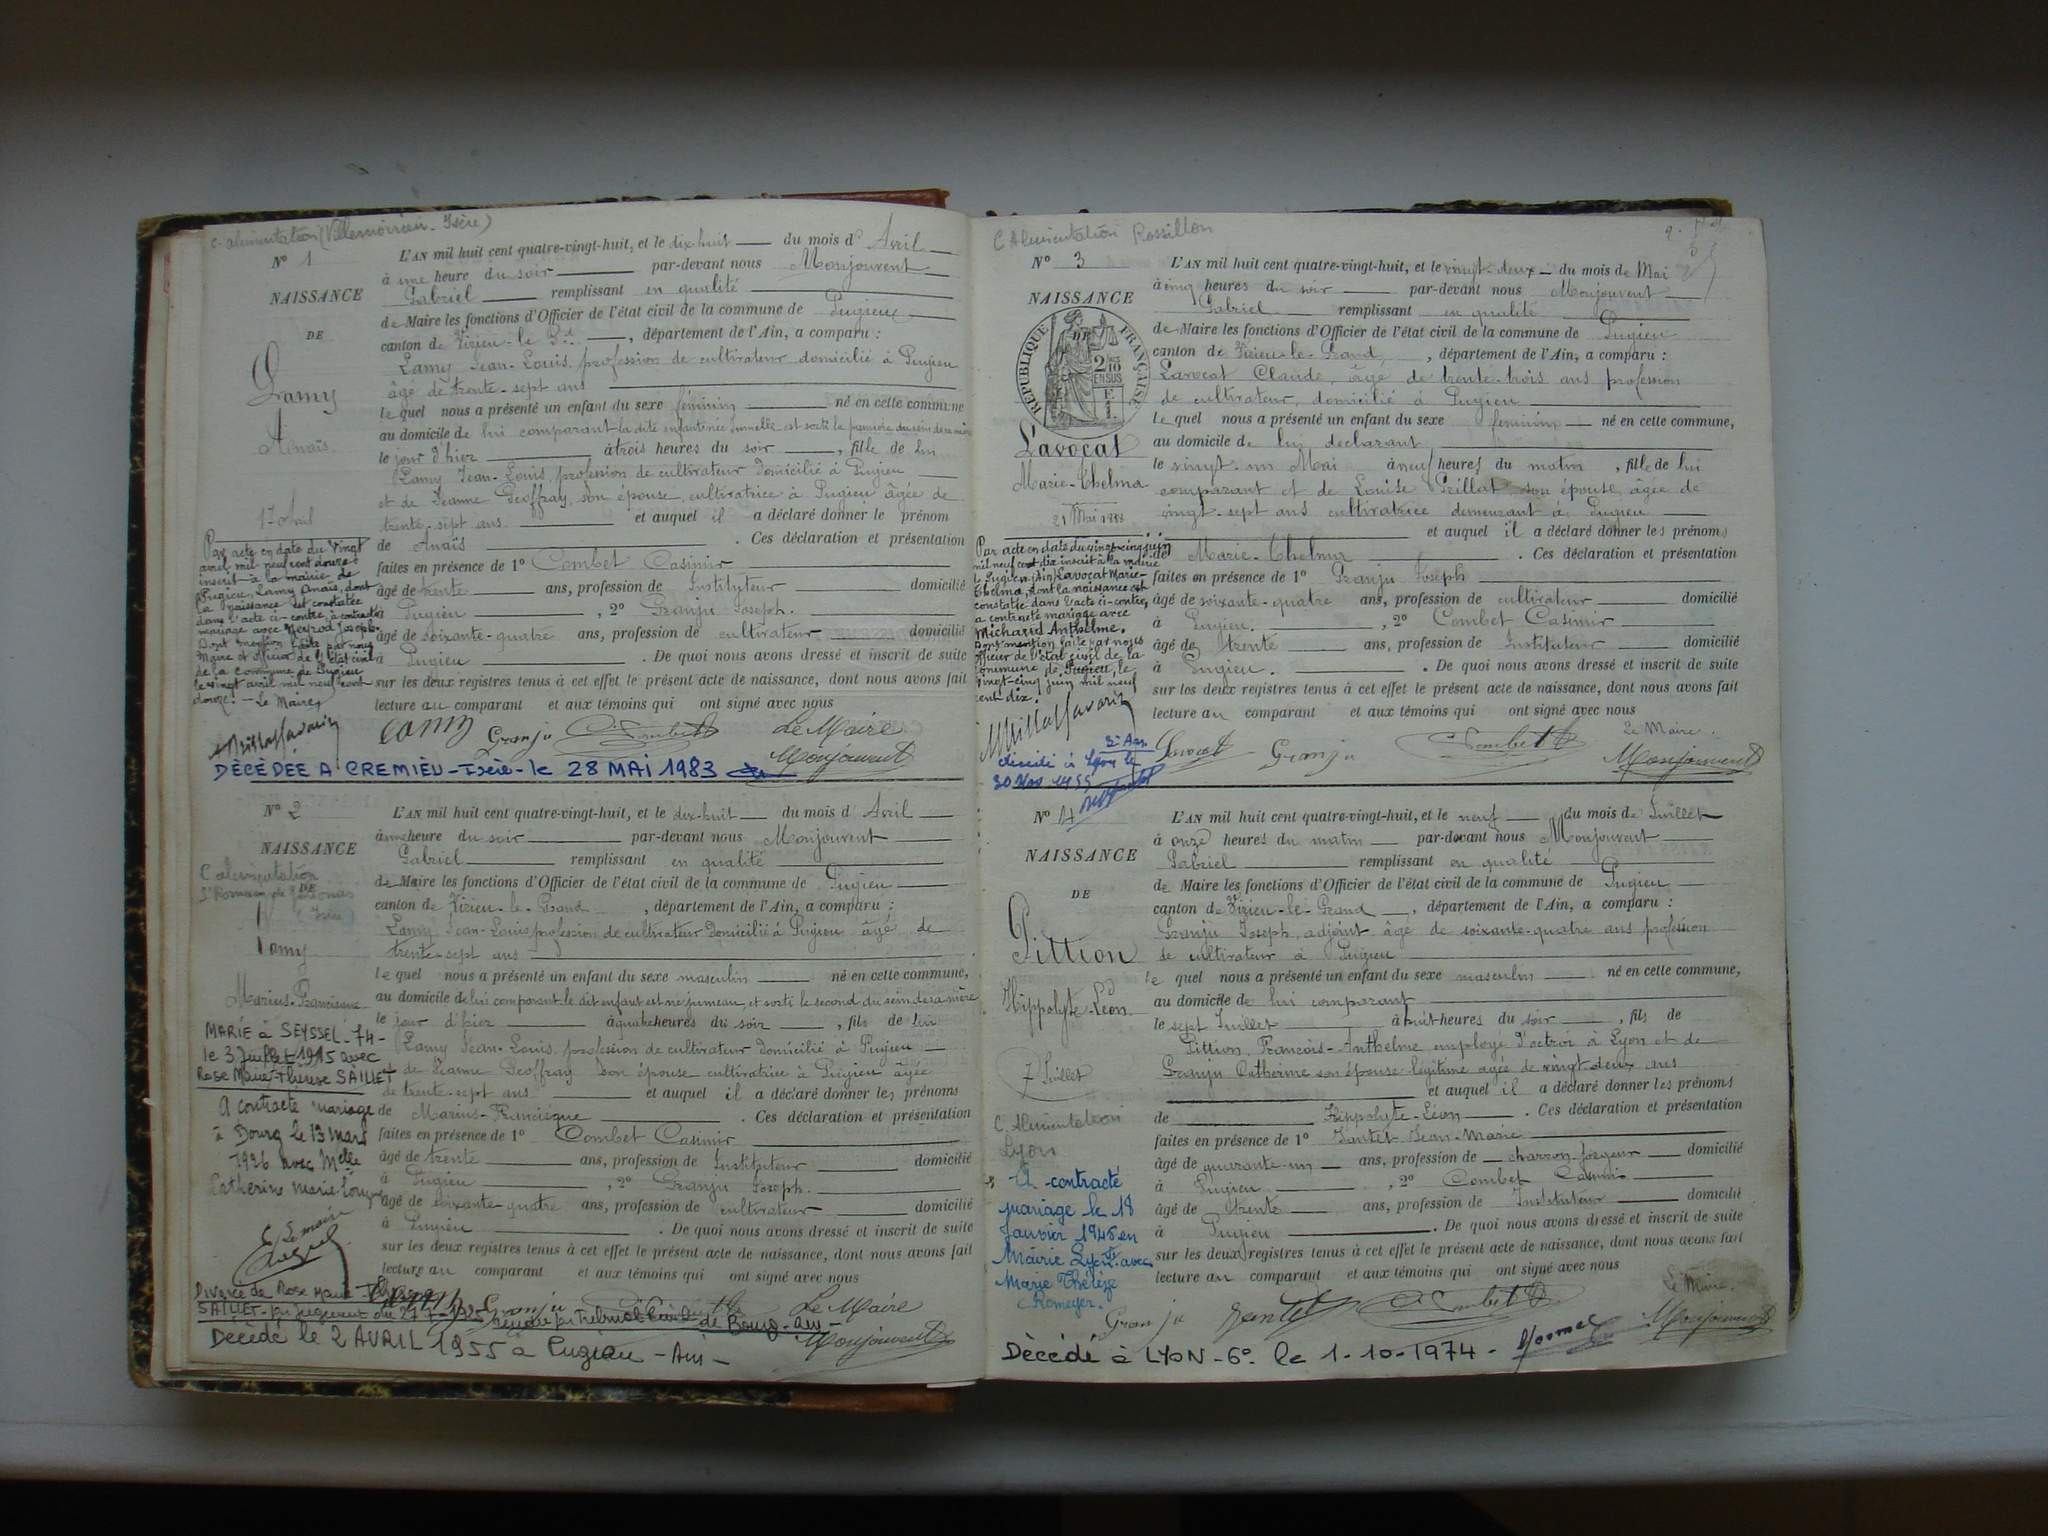 C. alimentation (Villemoirieu - Isère)
N° 1
NAISSANCE
DE
Lamy
Anaïs
17 Avril
Par acte en date du vingt
avril mil neuf cent douze
inscrit à la mairie de
Pugieu, Lamy Anaïs, dont
la naissance est constatée
dans l'acte ci-contre, a contracté
mariage avec Meyrod Joseph.
Dont mention faite par nous
Maire et officier de l'état civil
de la Commune de Pugieu
le vingt avril mil neuf cent
douze. - Le Maire,
L'AN mil huit cent quatre-vingt-huit, et le dix-huit du mois d' Avril
à une heure du soir par-devant nous Monjouvent
Gabriel remplissant en qualité
de Maire les fonctions d'Officier de l'état civil de la commune de Pugieu
canton de Virieu-le-Gd, département de l'Ain, a comparu :
Lamy Jean-Louis, profession de cultivateur domicilié à Pugieu
âgé de trente-sept ans
le quel nous a présenté un enfant du sexe féminin né en cette commune
au domicile de lui comparant la dite enfant est sortie la première du sein de sa mère
le jour d'hier à trois heures du soir, fille de lui
Lamy Jean-Louis, profession de cultivateur domicilié à Pugieu
et de Jeanne Geoffray, son épouse, cultivatrice à Pugieu âgée de
trente-sept ans et auquel il a déclaré donner le prénom
de Anaïs. Ces déclaration et présentation
faites en présence de 1° Combet Casimir
âgé de trente ans, profession de Instituteur domicilié
à Pugieu, 2° Granju Joseph.
âgé de soixante-quatre ans, profession de cultivateur domicilié
à Pugieu. De quoi nous avons dressé et inscrit de suite
sur les deux registres tenus à cet effet le présent acte de naissance, dont nous avons fait
lecture au comparant et aux témoins qui ont signé avec nous
Lamy Granju Combet Le Maire
Monjouvent
DÉCÉDÉE A CREMIEU - Isère - le 28 MAI 1983
N° 2
NAISSANCE
C alimentation
DE
(Isère)
Lamy
Marius-Francisque
MARIÉ à SEYSSEL - 74 -
le 3 Juillet 1915 avec
Rose Marie-Thérèse SAILLET
A contracté mariage
à Bourg le 13 mars
1926 avec Melle
Catherine Marie
Le maire
L'AN mil huit cent quatre-vingt-huit, et le dix-huit du mois d' Avril
à une heure du soir par-devant nous Monjouvent
Gabriel remplissant en qualité
de Maire les fonctions d'Officier de l'état civil de la commune de Pugieu
canton de Virieu-le-Grand, département de l'Ain, a comparu :
Lamy Jean-Louis, profession de cultivateur domicilié à Pugieu âgé de
trente-sept ans
le quel nous a présenté un enfant du sexe masculin né en cette commune,
au domicile de lui comparant le dit enfant est né jumeau et sorti le second du sein de sa mère
le jour d'hier à quatre heures du soir, fils de lui
Lamy Jean-Louis, profession de cultivateur domicilié à Pugieu
de Jeanne Geoffray son épouse cultivatrice à Pugieu âgée
de trente-sept ans et auquel il a déclaré donner les prénoms
de Marius-Francisque. Ces déclaration et présentation
faites en présence de 1° Combet Casimir
âgé de trente ans, profession de Instituteur domicilié
à Pugieu, 2° Granju Joseph.
âgé de soixante-quatre ans, profession de cultivateur domicilié
à Pugieu. De quoi nous avons dressé et inscrit de suite
sur les deux registres tenus à cet effet le présent acte de naissance, dont nous avons fait
lecture au comparant et aux témoins qui ont signé avec nous
Granju Combet Le Maire
Monjouvent
Divorcé de Rose Marie
SAILLET par jugement du Tribunal Civil de Bourg - Ain -
Décédé le 2 AVRIL 1955 à Pugieu - Ain -
C Alimentation Rossillon
N° 3
NAISSANCE
DE
RÉPUBLIQUE FRANÇAISE
Lavocat
Marie-Thelma
21 Mai 1888
Par acte en date du vingt-cinq juin
mil neuf cent dix inscrit à la mairie
de Pugieu (Ain) Lavocat Marie-
Thelma, dont la naissance est
constatée dans l'acte ci-contre,
a contracté mariage avec
Michard Anthelme.
Dont mention faite par nous
officier de l'état civil de la
Commune de Pugieu, le
vingt-cinq juin mil neuf
cent dix.
L'AN mil huit cent quatre-vingt-huit, et le vingt-deux du mois de Mai
à cinq heures du soir par-devant nous Monjouvent
Gabriel remplissant en qualité
de Maire les fonctions d'Officier de l'état civil de la commune de Pugieu
canton de Virieu-le-Grand, département de l'Ain, a comparu :
Lavocat Claude, âgé de trente-trois ans profession
de cultivateur, domicilié à Pugieu
le quel nous a présenté un enfant du sexe féminin né en cette commune,
au domicile de lui déclarant
le vingt-un Mai à neuf heures du matin, fille de lui
comparant et de Louise Grillat son épouse âgée de
vingt-sept ans cultivatrice demeurant à Pugieu
et auquel il a déclaré donner les prénoms
de Marie-Thelma. Ces déclaration et présentation
faites en présence de 1° Granju Joseph
âgé de soixante-quatre ans, profession de cultivateur domicilié
à Pugieu, 2° Combet Casimir
âgé de trente ans, profession de Instituteur domicilié
à Pugieu. De quoi nous avons dressé et inscrit de suite
sur les deux registres tenus à cet effet le présent acte de naissance, dont nous avons fait
lecture au comparant et aux témoins qui ont signé avec nous
Lavocat Granju Combet Le Maire.
Monjouvent
décédé à Lyon le
N° 4
NAISSANCE
DE
Pittion
Hippolyte-Léon
7 Juillet
C. Alimentation
Lyon
A contracté
mariage le 18
Janvier 1946 en
Mairie Lyon avec
Marie Thérèze
Romeyer.
L'AN mil huit cent quatre-vingt-huit, et le neuf du mois de Juillet
à onze heures du matin par-devant nous Monjouvent
Gabriel remplissant en qualité
de Maire les fonctions d'Officier de l'état civil de la commune de Pugieu
canton de Virieu-le-Grand, département de l'Ain, a comparu :
Granju Joseph, adjoint âgé de soixante-quatre ans profession
de cultivateur à Pugieu
le quel nous a présenté un enfant du sexe masculin né en cette commune,
au domicile de lui comparant
le sept Juillet à huit heures du soir, fils de
Pittion, François-Anthelme employé d'octroi à Lyon et de
Granju Catherine son épouse légitime agée de vingt-deux ans
et auquel il a déclaré donner les prénoms
de Hippolyte-Léon. Ces déclaration et présentation
faites en présence de 1° Jantet Jean-Marie
âgé de quarante-un ans, profession de charron-forgeur domicilié
à Pugieu, 2° Combet Casimir
âgé de trente ans, profession de Instituteur domicilié
à Pugieu. De quoi nous avons dressé et inscrit de suite
sur les deux registres tenus à cet effet le présent acte de naissance, dont nous avons fait
lecture au comparant et aux témoins qui ont signé avec nous
Granju Jantet Combet Le Maire.
Monjouvent
Décédé à LYON - 6° le 1-10-1974 -